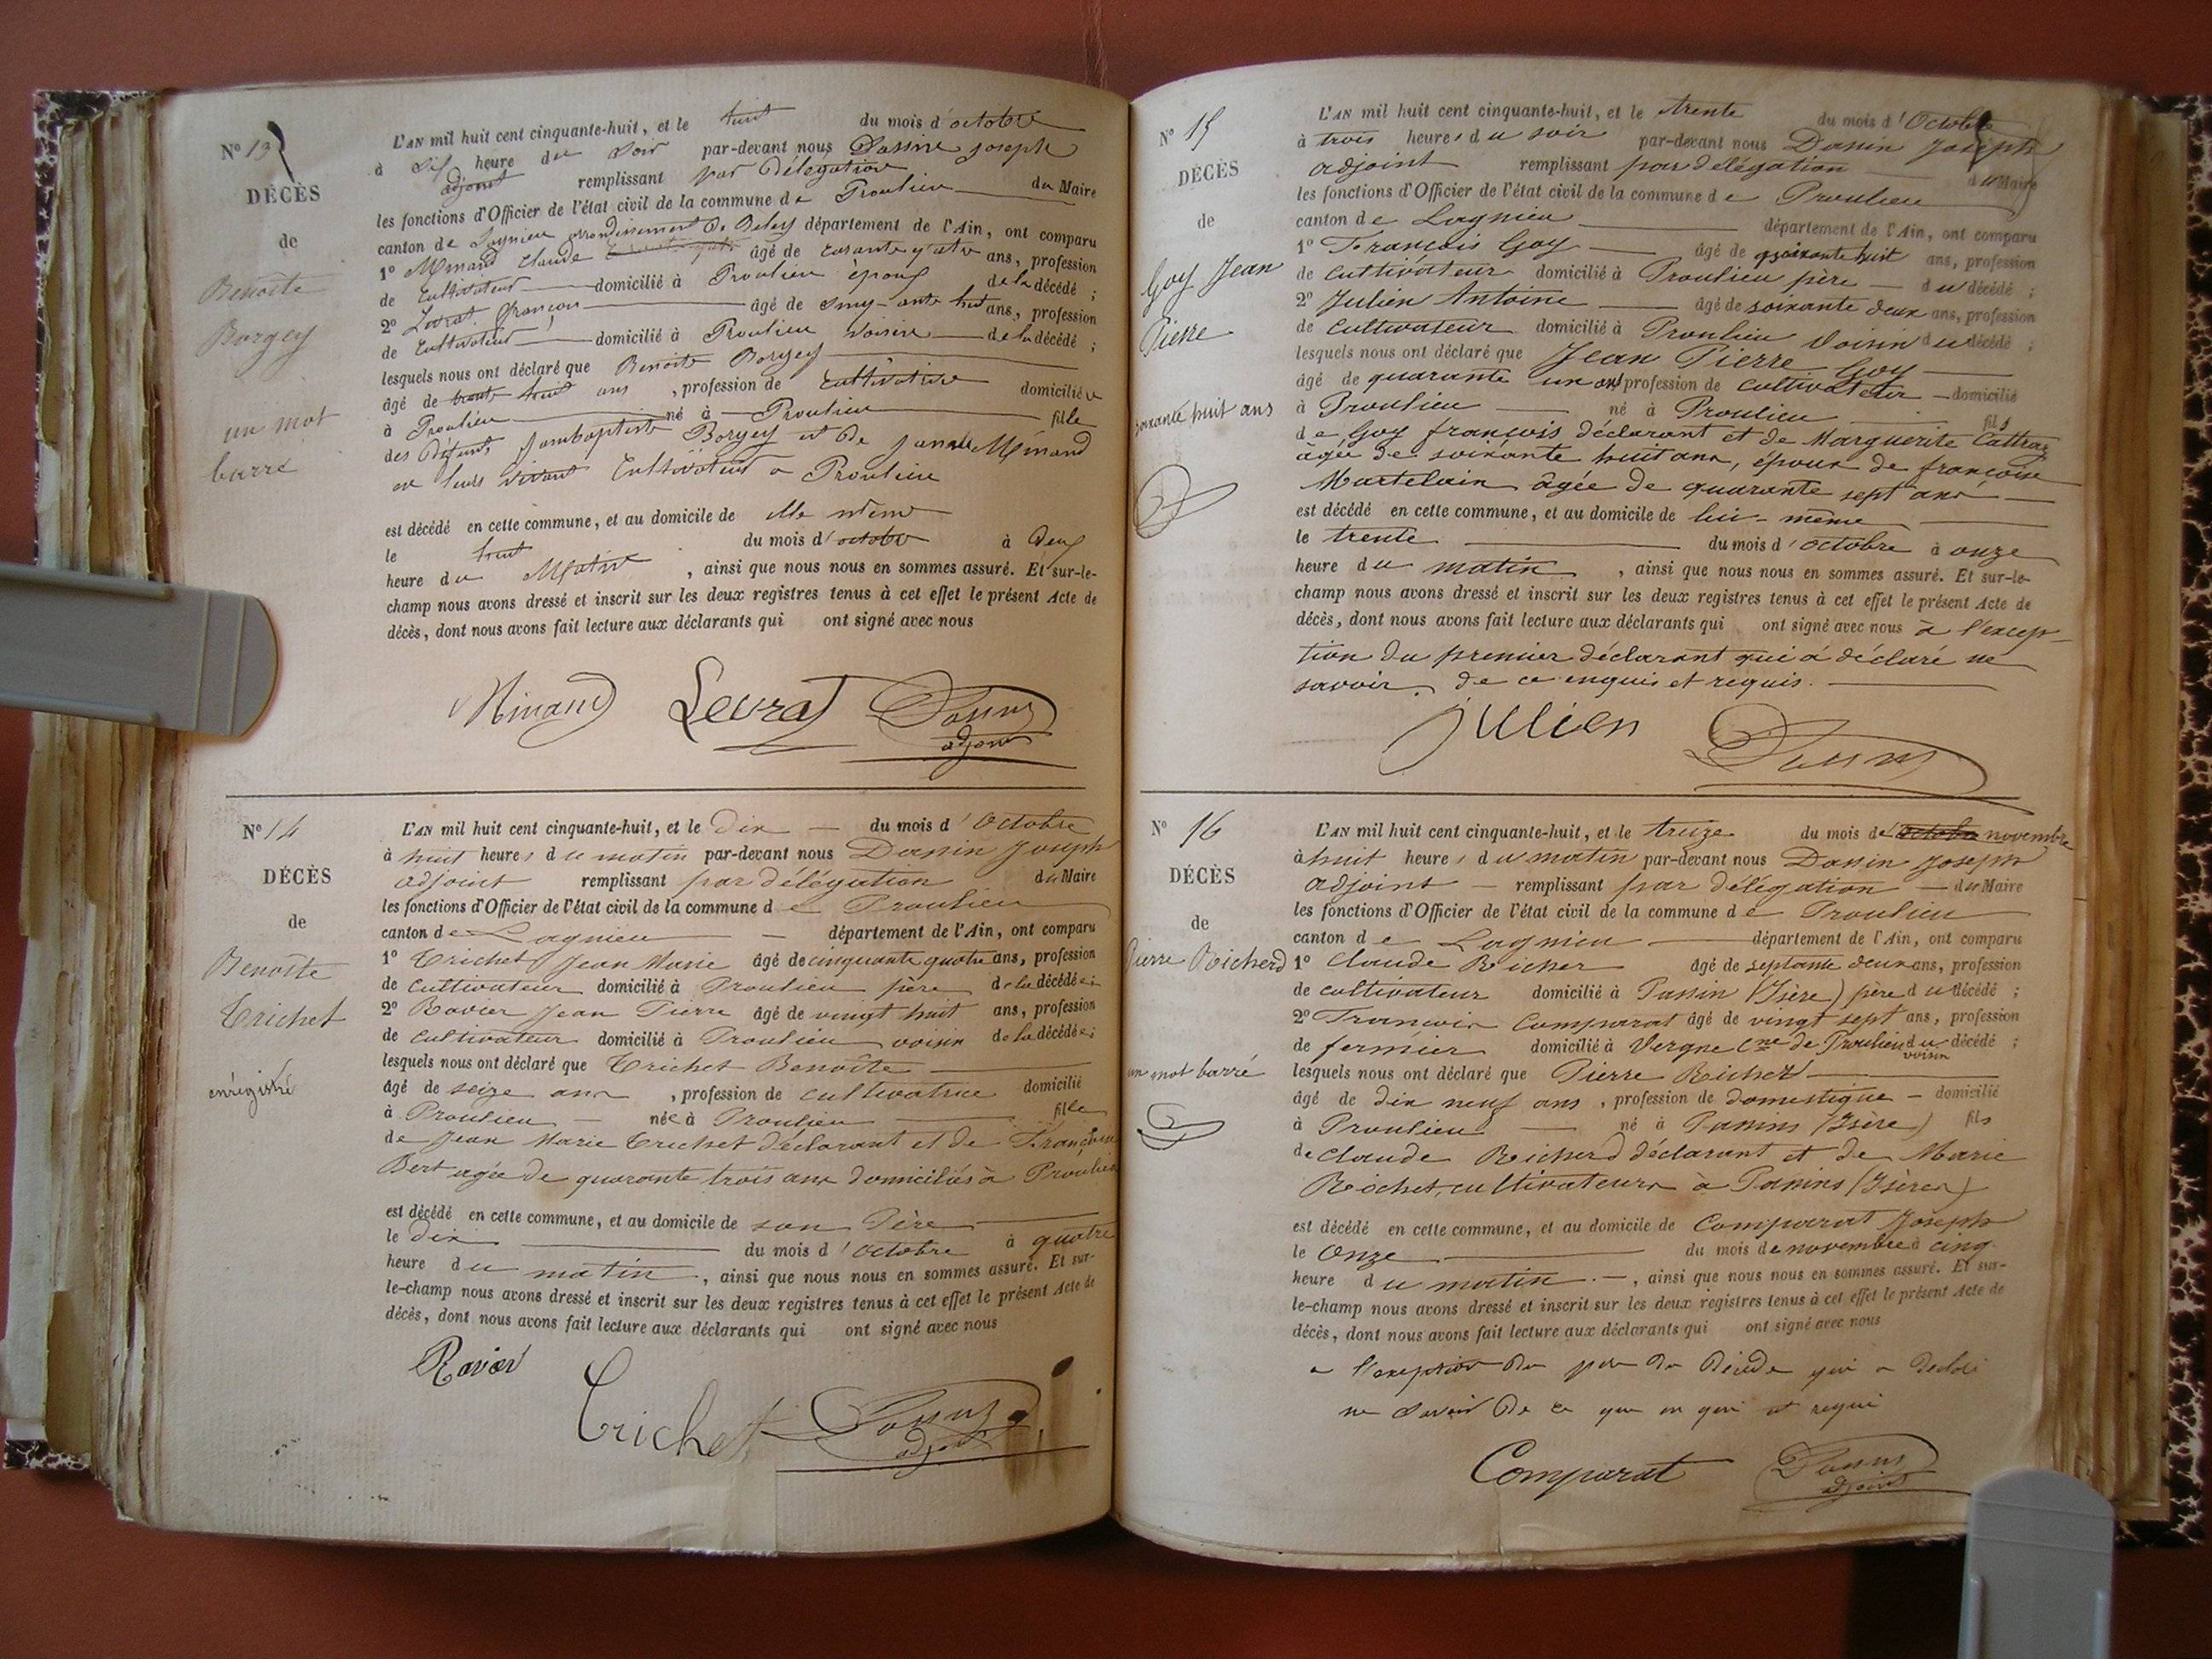 N° 13
DÉCÈS
de
Benoîte
Borgey
un mot
barré
L'AN mil huit cent cinquante-huit, et le huit du mois d'octobre
à six heure du soir par-devant nous Dassin joseph
adjoint remplissant par Délégation du Maire
les fonctions d'Officier de l'état civil de la commune de Proulieu
canton de Lagnieu arrondissement De Belley département de l'Ain, ont comparu
1° Minand Claude âgé de ans, profession
de Cultivateur domicilié à Proulieu époux de la décédé ;
2° Levrat françois âgé de ans, profession
de Cultivateur domicilié à Proulieu voisin de la décédé ;
lesquels nous ont déclaré que Benoîte Borgey
âgé de trente huit ans, profession de cultivatrice domicilié e
à Proulieu né à Proulieu fille
des Défunts jeanbaptiste Borgey et De Minand
en leurs vivant Cultivateurs a Proulieu
est décédé en cette commune, et au domicile de elle même
le huit du mois d'octobre à Deux
heure du Matin, ainsi que nous nous en sommes assuré. Et sur-le-
champ nous avons dressé et inscrit sur les deux registres tenus à cet effet le présent Acte de
décès, dont nous avons fait lecture aux déclarants qui ont signé avec nous
Minand Levrat Dassin
adjoint
N° 14
DÉCÈS
de
Benoîte
Trichet
enrégistré
L'AN mil huit cent cinquante-huit, et le Dix du mois d'Octobre
à huit heures du matin par-devant nous Dassin Joseph
adjoint remplissant par délégation du Maire
les fonctions d'Officier de l'état civil de la commune de Proulieu
canton de Lagnieu département de l'Ain, ont comparu
1° Trichet Jean Marie âgé de cinquante quatre ans, profession
de cultivateur domicilié à Proulieu père de la décédée ;
2° Ravier Jean Pierre âgé de vingt huit ans, profession
de cultivateur domicilié à Proulieu voisin de la décédée ;
lesquels nous ont déclaré que Trichet Benoîte
âgé de seize ans, profession de cultivatrice domicilié
à Proulieu née à Proulieu fille
de Jean Marie Trichet déclarant et de Françoise
Bert agée de quarante trois ans domiciliés à Proulieu
est décédé en cette commune, et au domicile de son Père
le dix du mois d'octobre à quatre
heure du matin, ainsi que nous nous en sommes assuré. Et sur-
le-champ nous avons dressé et inscrit sur les deux registres tenus à cet effet le présent Acte de
décès, dont nous avons fait lecture aux déclarants qui ont signé avec nous
Ravier
Trichet Dassin
adjoint
N° 15
DÉCÈS
de
Goy Jean
Pierre
soixante huit ans
L'AN mil huit cent cinquante-huit, et le trente du mois d'Octobre
à trois heures du soir par-devant nous Dassin Joseph
adjoint remplissant par délégation du Maire
les fonctions d'Officier de l'état civil de la commune de Proulieu
canton de Lagnieu département de l'Ain, ont comparu
1° François Goy âgé de soixante huit ans, profession
de cultivateur domicilié à Proulieu père du décédé ;
2° Julien Antoine âgé de soixante deux ans, profession
de cultivateur domicilié à Proulieu voisin du décédé ;
lesquels nous ont déclaré que Jean Pierre Goy
âgé de quarante un ans profession de cultivateur domicilié
à Proulieu né à Proulieu fils
de Goy françois déclarant et de Marguerite
âgée de soixante huit ans, époux de françoise
Martelain âgée de quarante sept ans
est décédé en cette commune, et au domicile de lui-même
le trente du mois d'octobre à onze
heure du matin, ainsi que nous nous en sommes assuré. Et sur-le-
champ nous avons dressé et inscrit sur les deux registres tenus à cet effet le présent Acte de
décès, dont nous avons fait lecture aux déclarants qui ont signé avec nous à l'excep-
tion du premier déclarant qui a déclaré ne
savoir. de ce enquis et requis.
Julien Dassin
N° 16
DÉCÈS
de
Pierre Richerd
un mot barré
L'AN mil huit cent cinquante-huit, et le treize du mois de octobre novembre
à huit heures du matin par-devant nous Dassin Joseph
adjoint remplissant par délégation du Maire
les fonctions d'Officier de l'état civil de la commune de Proulieu
canton de Lagnieu département de l'Ain, ont comparu
1° Claude Richer âgé de septante deux ans, profession
de cultivateur domicilié à Passin (Isère) père du décédé ;
2° François Comparat âgé de vingt sept ans, profession
de fermier domicilié à Vergne Cne de Proulieu voisin du décédé ;
lesquels nous ont déclaré que Pierre Richerd
âgé de dix neuf ans, profession de domestique domicilié
à Proulieu né à Passins (Isère) fils
de Claude Richerd déclarant et de Marie
Rochet, cultivateurs à Passins (Isère)
est décédé en cette commune, et au domicile de Comparat Joseph
le Onze du mois de novembre à cinq
heure du matin, ainsi que nous nous en sommes assuré. Et sur-
le-champ nous avons dressé et inscrit sur les deux registres tenus à cet effet le présent Acte de
décès, dont nous avons fait lecture aux déclarants qui ont signé avec nous
a l'exeption du père du Décédé qui a déclaré
ne savoir De ce que en qui et requi
Comparat Dassin
adjoint